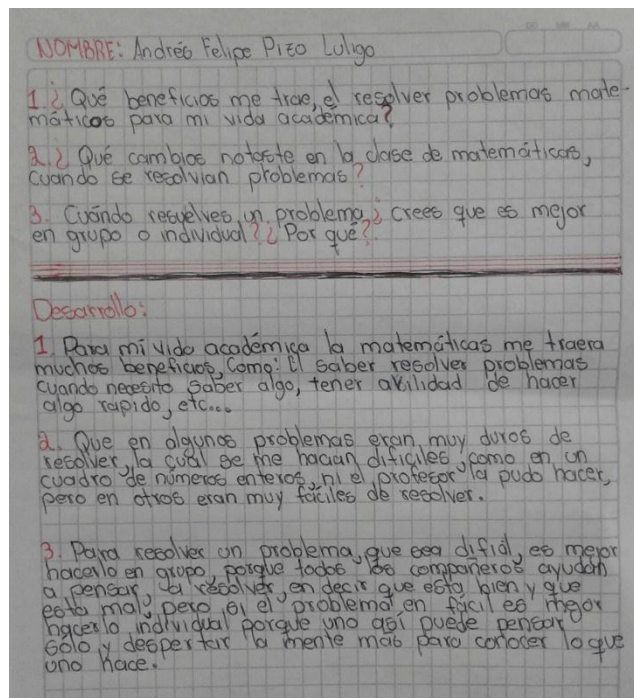 NOMBRE: Andrés Felipe Pizo Luligo
1. ¿ Qué beneficios me trae, el resolver problemas mate-
máticos para mi vida académica?
2. ¿ Qué cambios notaste en la clase de matemáticas,
cuando se resolvian problemas?
3. Cuándo resuelves, un problema, ¿ crees que es mejor
en grupo o individual? ¿ Por qué?
Desarrollo:
1. Para mi vida académica la matemáticas me traera
muchos beneficios, Como: El saber resolver problemas
cuando necesito saber algo, tener avilidad de hacer
algo rapido, etc...
2. Que en algunos problemas eran, muy duros de
resolver, la cual se me hacian dificiles, como en un
cuadro de números enteros, ni el profesor la pudo hacer,
pero en otros eran muy fáciles de resolver.
3. Para resolver un problema, que sea difial, es mejor
hacerlo en grupo, porque todos los compañeros ayudan
a pensar, a resolver, en decir que esta bien y que
esta mal, pero si el problema en fácil es mejor
hacerlo individual porque uno asi puede pensar
solo y despertar la mente mas para conocer lo que
uno hace.